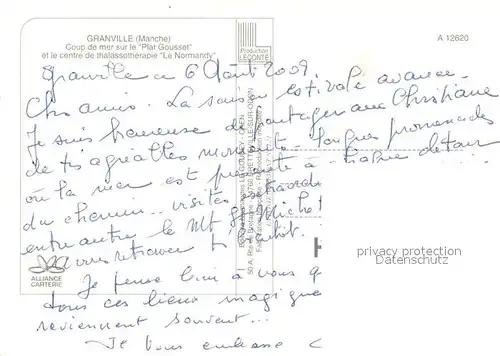 GRANVILLE (Manche)
Coup de mer sur le "Plat Gousset"
et le centre de thalassothérapie "Le Normandy"
Production
LECONTE
A 12620
Granville le 6 Août 2009
Chers amis. La saison estivale avance.
Je suis heureuse de partager avec Christiane
de très agréables moments. Longues promenades
où la mer est présente à chaque détour
du chemin... visites
entre autre le Mt St Michel
vous retrouver bientôt.
ALLIANCE
CARTERIE
Je pense bien à vous
tous ces lieux magiques
reviennent souvent...
Je vous embrasse
privacy protection
Datenschutz